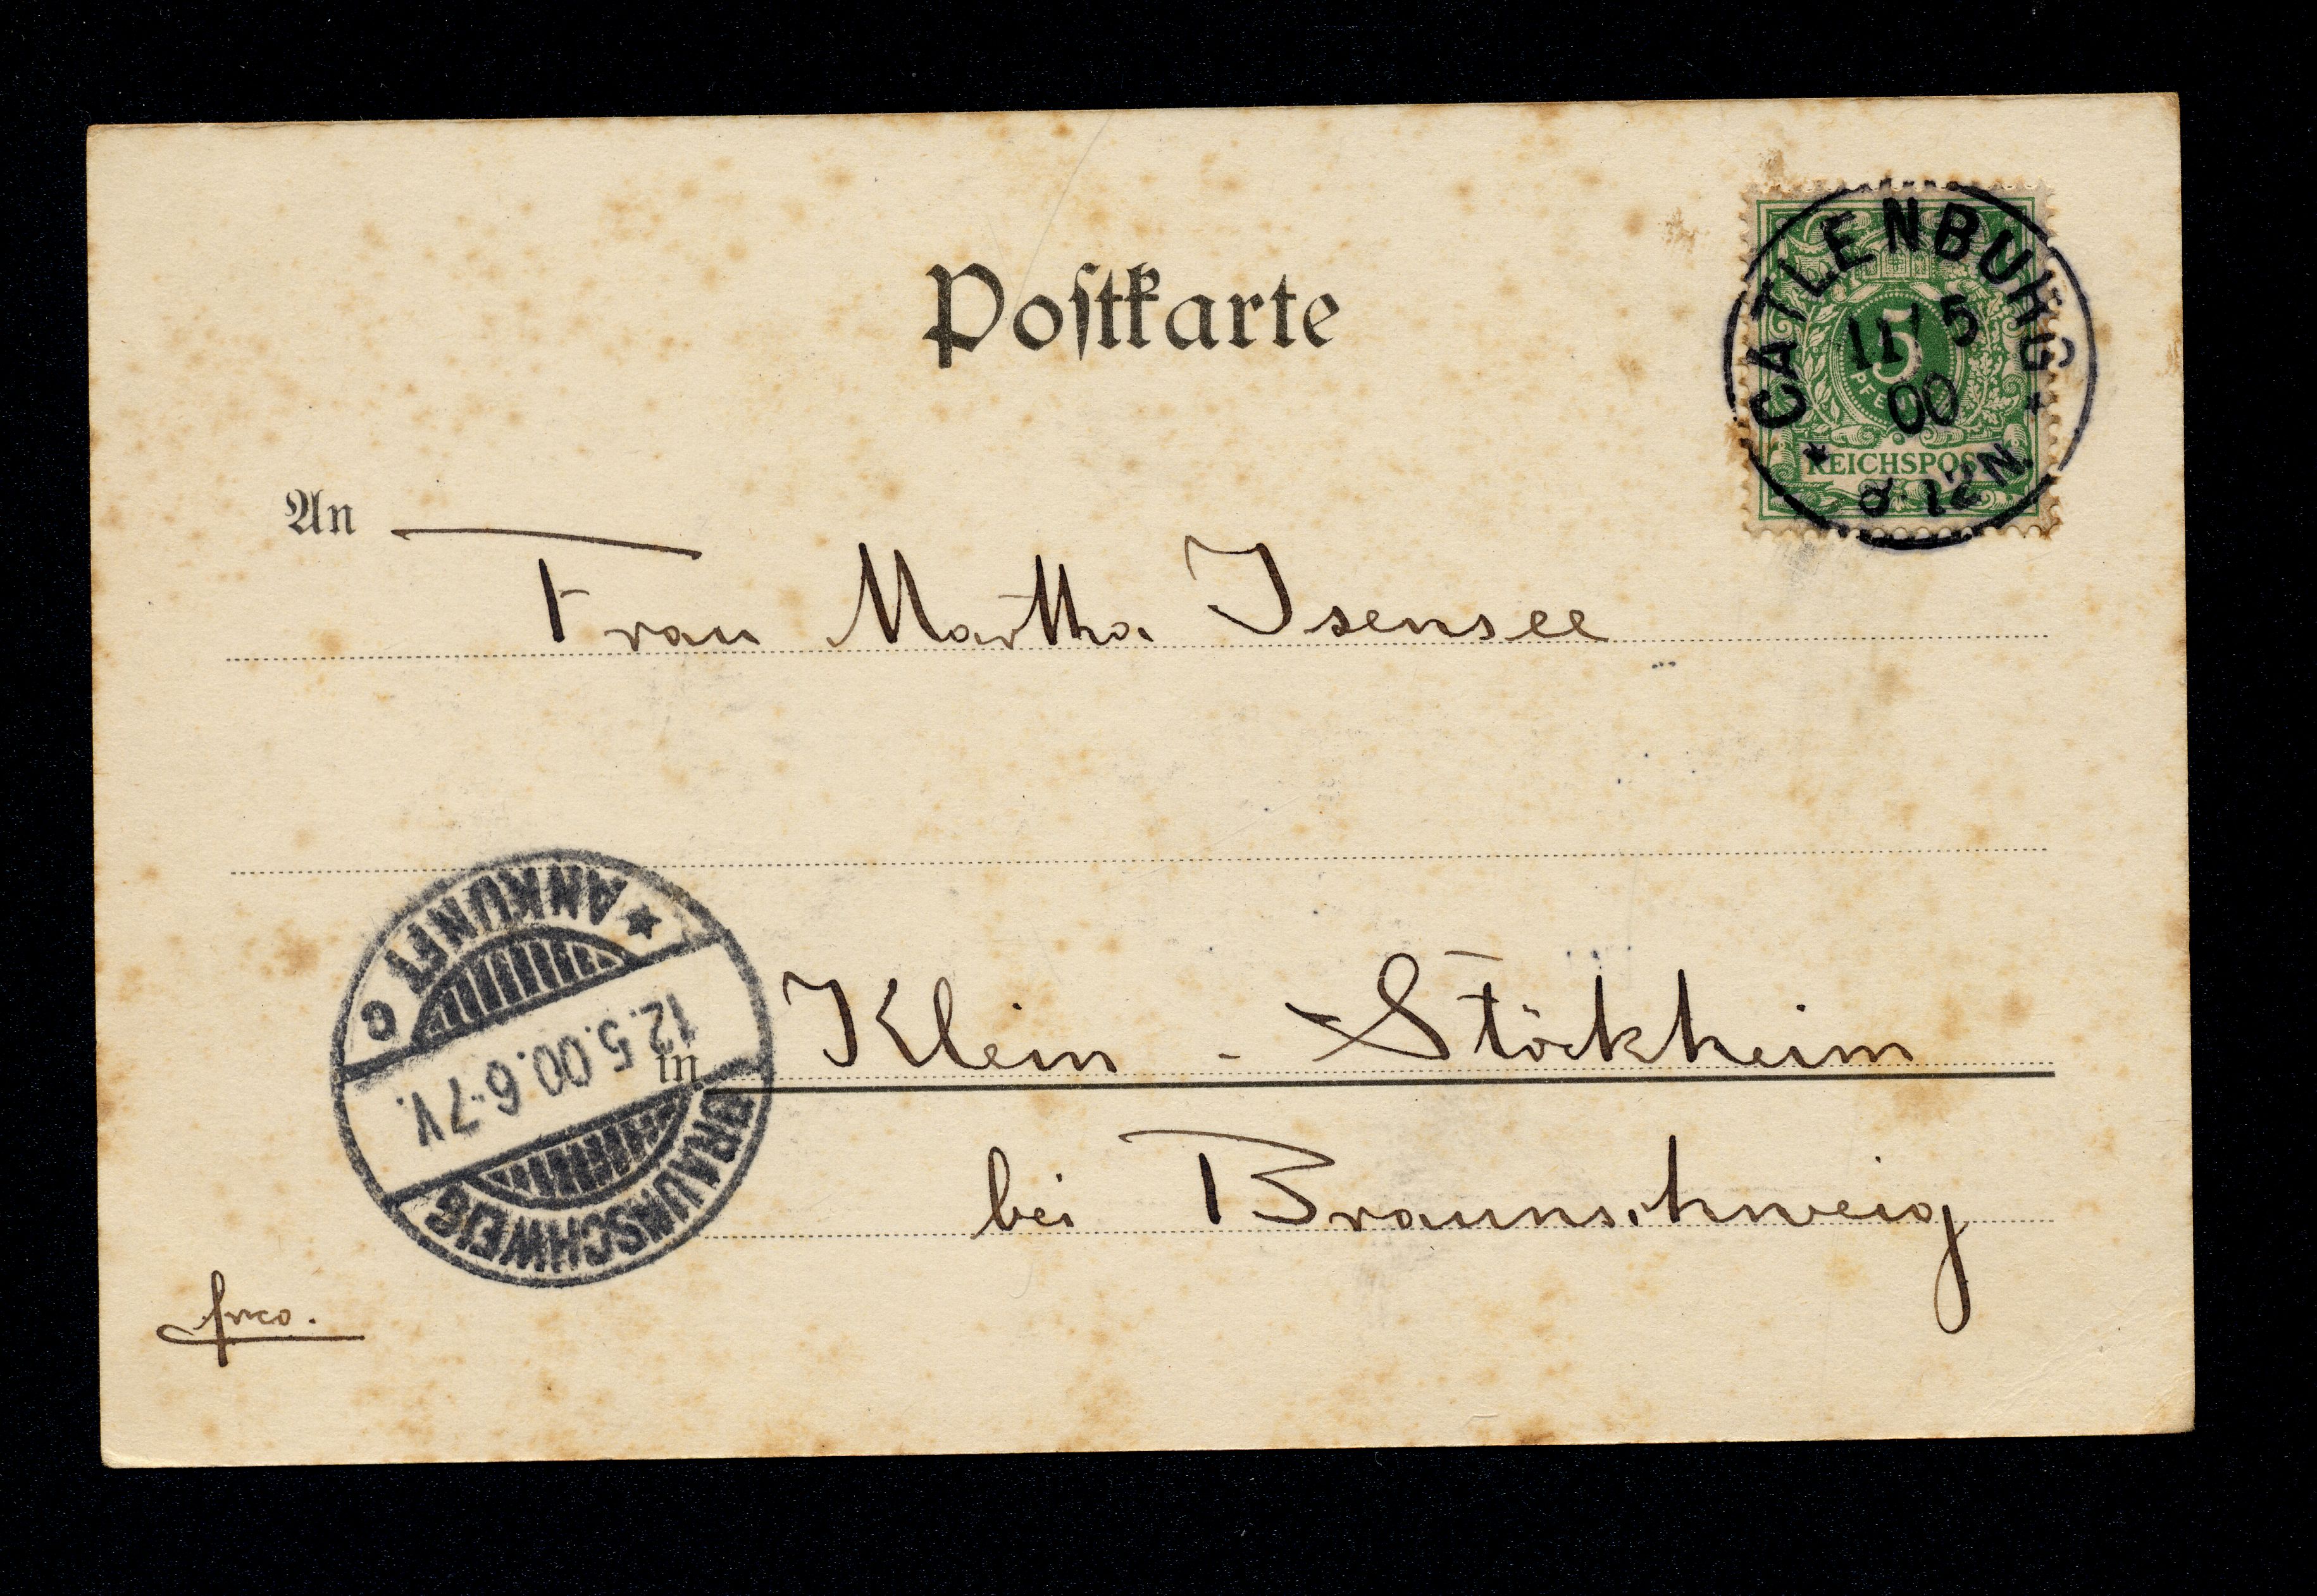 Postkarte
CATLENBURG
11/5
00
8-12N.
5
REICHSPOST
An
Frau Martha Isensee
ANKUNFT C
12.5.00.6-7V.
BRAUNSCHWEIG
in Klein - Stöckheim
bei Braunschweig
frco.